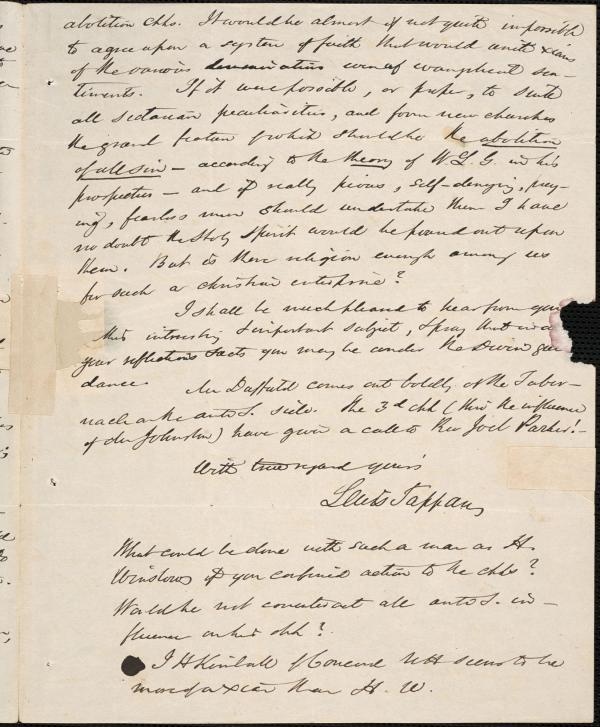 abolition chhs. It would be almost if not quite impossible
to agree upon a system of faith that would unite xians
of the various denominations even of evangelical sen-
timents. If it were possible, or proper, to sink
all sectarian peculiarities, and form new churches
the grand feature of which should be the abolition
of all sin — according to the theory of W. L. G. in his
prospectus — and if really pious, self-denying, pray-
ing, fearless men should undertake them I have
no doubt the Holy Spirit would be poured out upon
them. But is there religion enough among us
for such a christian enterprise?
I shall be much pleased to hear from you on
this interesting & important subject, & pray that in all
your reflections & acts you may be under the Divine gui-
dance. Mr Duffield comes out boldly at the Taber-
nacle on the anti S. side. The 3d chh (thro' the influence
of Dr Johnston) have given a call to Rev Joel Parker!-
With true regard yours
Lewis Tappan,
What could be done with such a man as H.
Winslow if you confined action to the chhs?
Would he not counteract all anti S. in-
fluence on his chh?
J H Kimball of Concord NH seems to be
more of a xian than H. W.